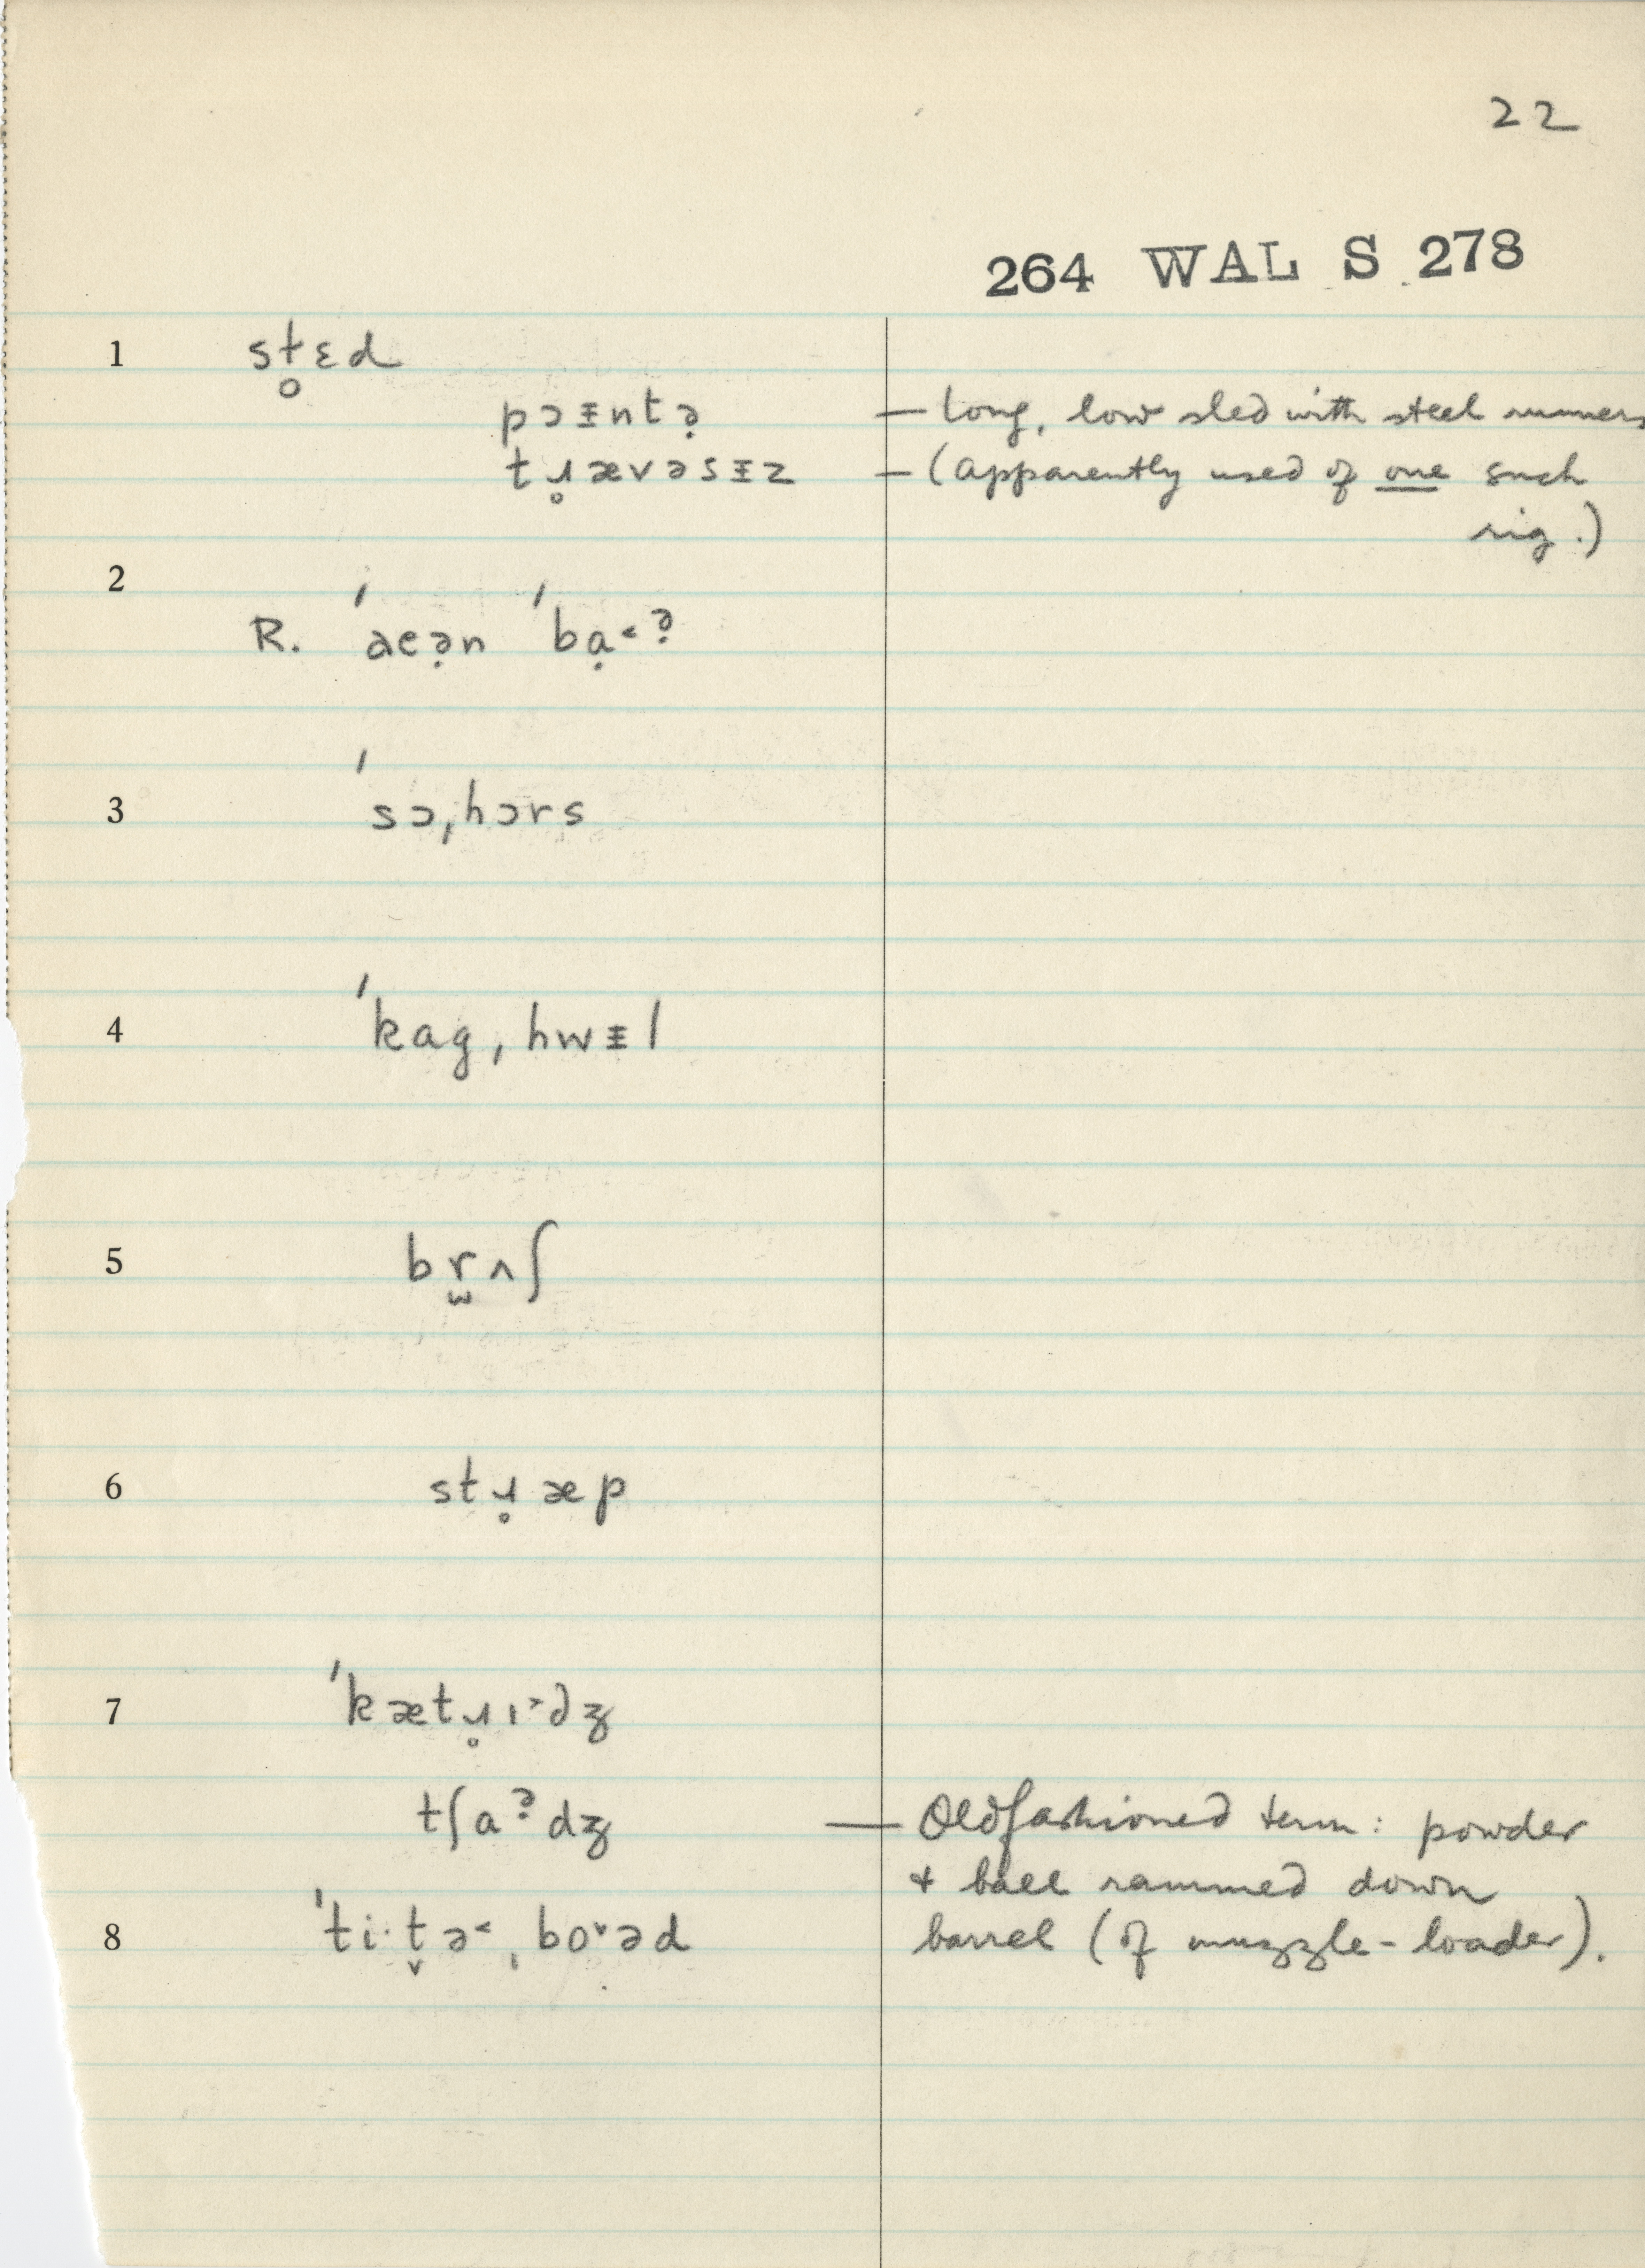 22
264 WAL S 278
1 sɫ̥ɛd
pɔᵻntə̣ — long, low sled with steel runners
tɹ̥ævəsᵻz — (apparently used of one such
rig.)
2
R. ˈaeə̣n ˈbạ˂ə̣
3 ˈsɔˌhɔrs
4 ˈkagˌhwᵻl
5 br̫ʌʃ
6 stɹ̥æp
7 ˈkætɹ̥ɪ˃dʒ
tʃaə̣dʒ — Oldfashioned term: powder
+ ball rammed down
8 ˈti·t̬ə˂ˌbo˅əd barrel (of muzzle-loader).